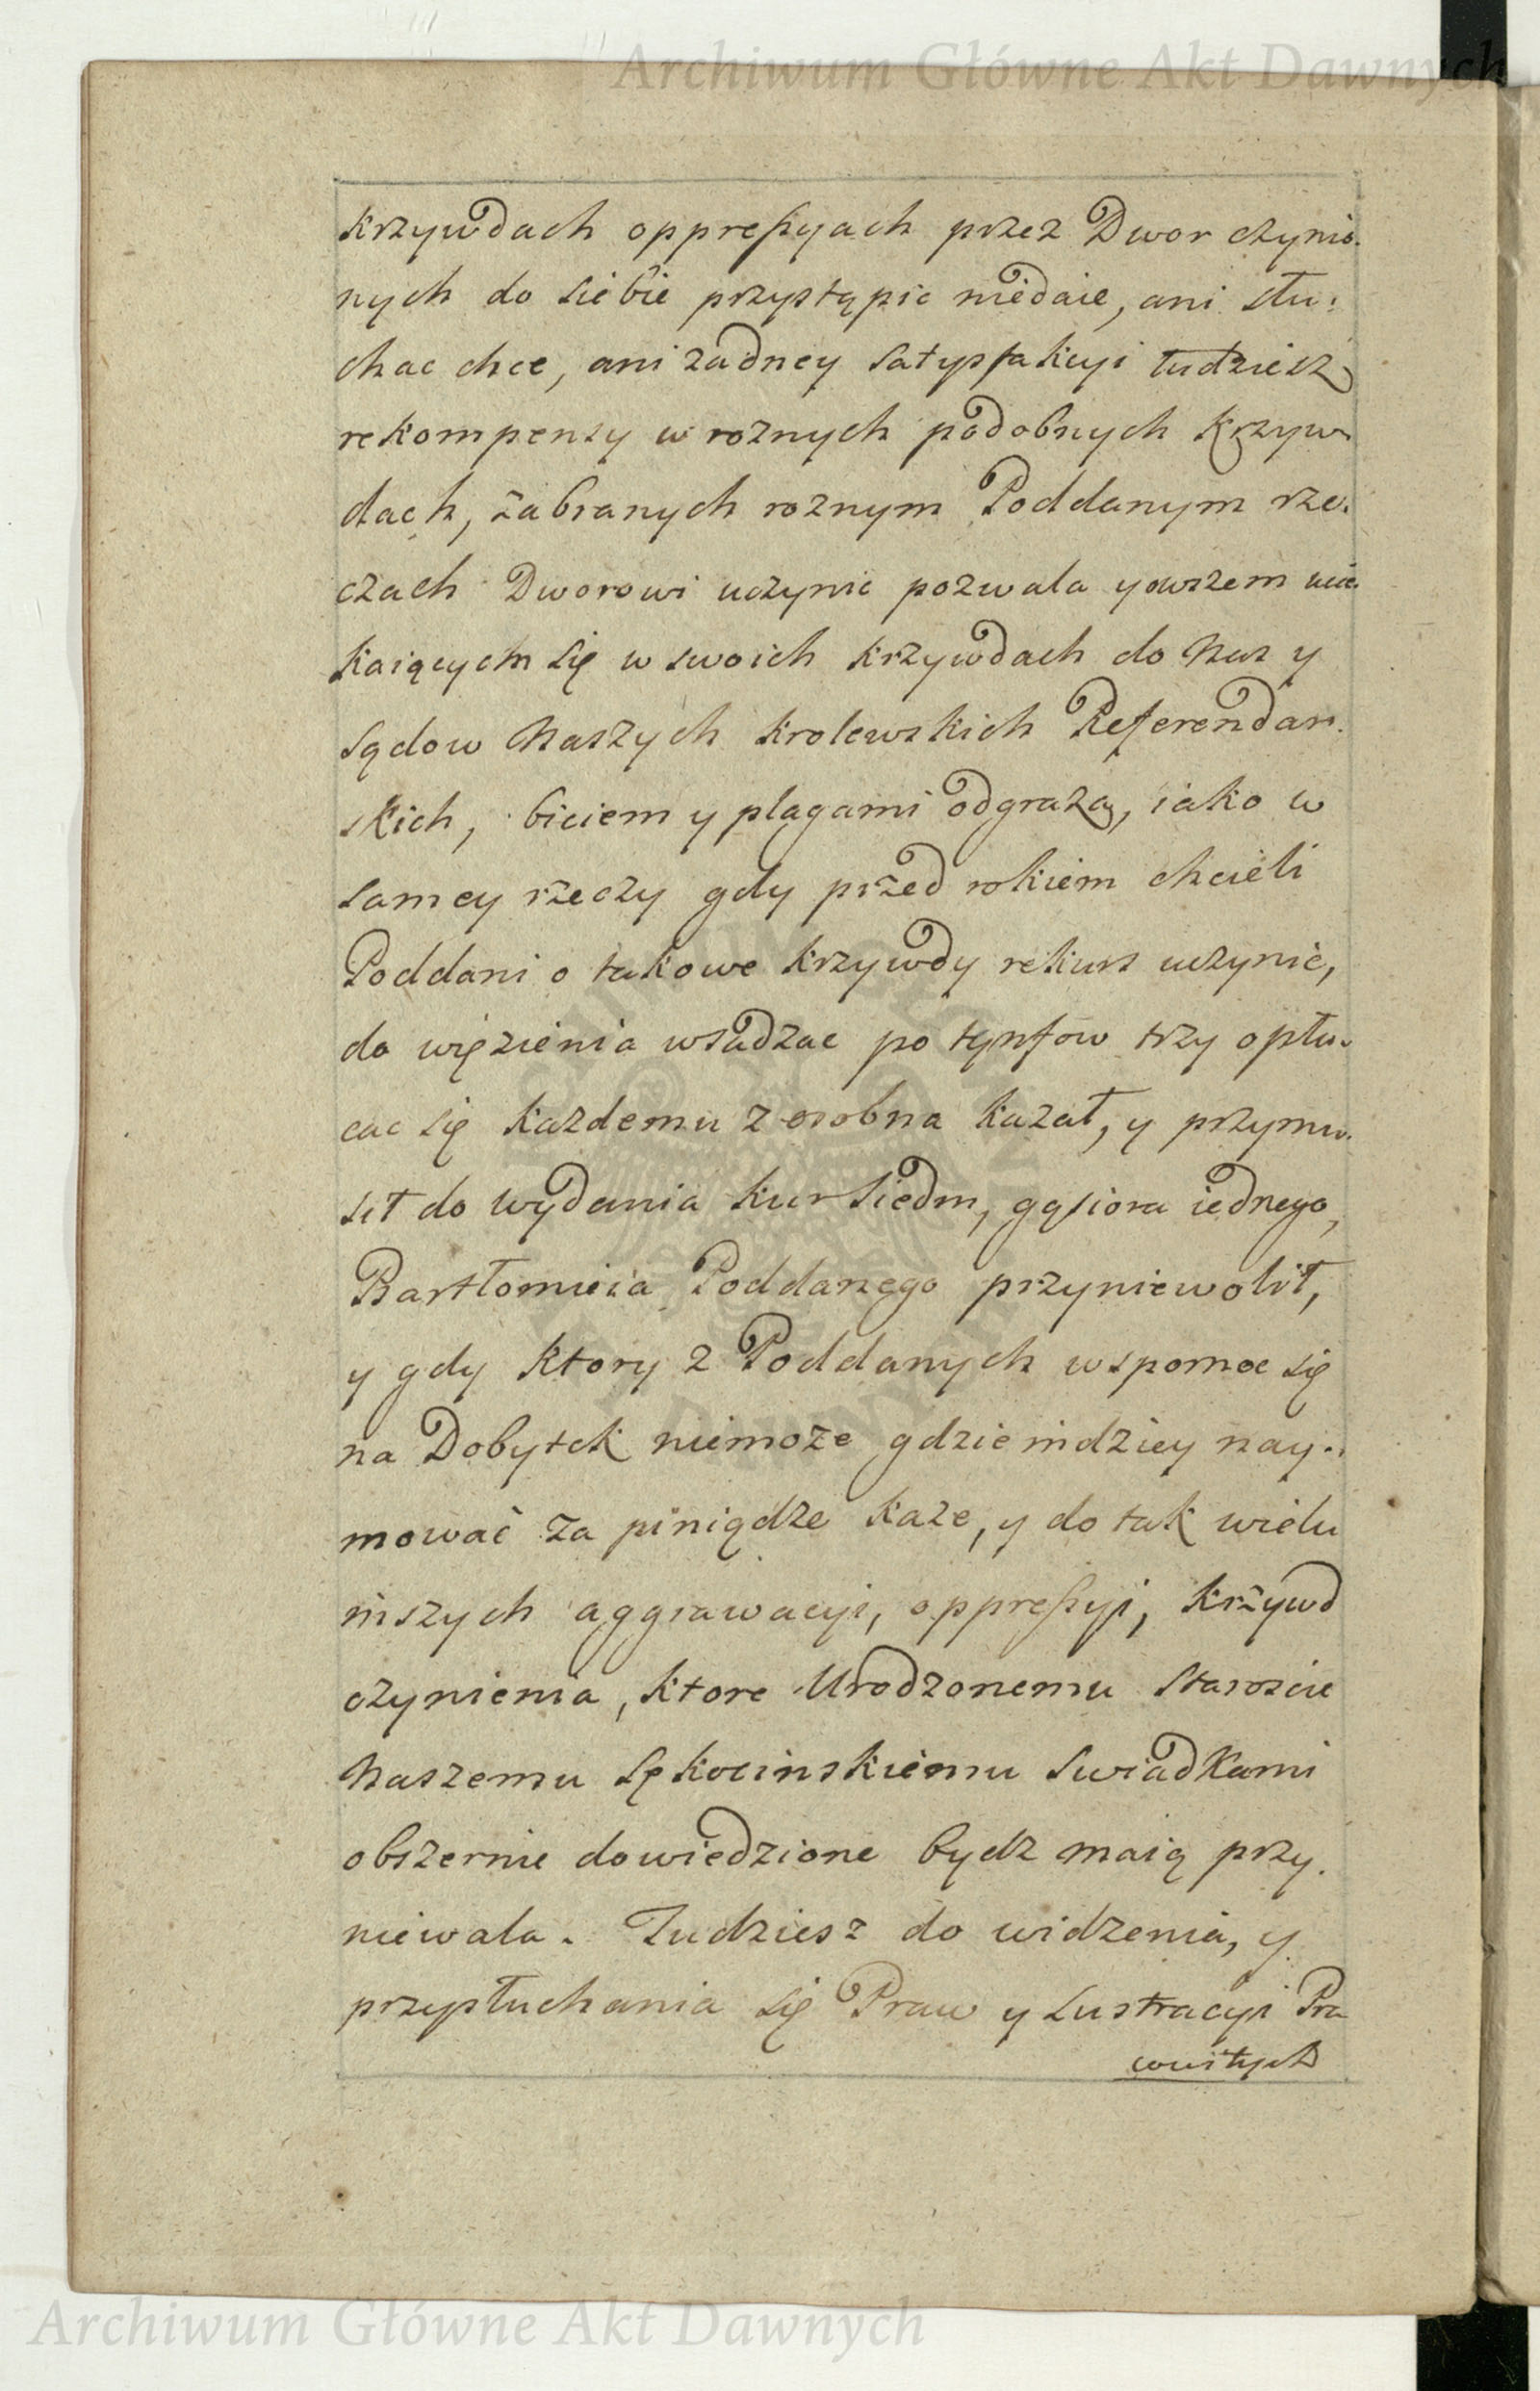 Archiwum Główne Akt Dawnych
krzywdach oppreſsyach przez Dwor czynio.
nych do siebie przystąpic niedaie, ani słu:
chac chce, ani zadney satysfakcyi tudziesz
rekompensy w roznych podobnych krzyw
dach, zabranych roznym Poddanym rze.
czach Dworowi uczynic pozwala yowszem ucie
kaiącym się w swoich krzywdach do Nas y
sądow Naszych krolewskich Referendar.
skich, biciem y plagami odgraza, iako w
samey rzeczy gdy przed rokiem chcieli
Poddani o takowe krzywdy rekurs uczynić,
do więzienia wsadzac po tynfow trzy opłu.
cac się kazdemu z osobna kazał, y przymu.
sił do wydania kur siedm, gąsiora iednego,
Bartłomieia Poddanego przyniewolił,
y gdy ktory z Poddanych wspomoc się
na Dobytek niemoze gdzieindziey nay.
mować za piniądze kaze, y do tak wielu
inszych aggrawacyi, oppreſsyi, krzywd
czynienia, ktore Urodzonemu Staroscie
Naszemu Sękocinskiemu Swiadkami
obszernie dowiedzione bydz maią przy.
niewala. Tudziesz do widzenia, y
przysłuchania się Praw y Lustracyi Pra
wnistych
Archiwum Główne Akt Dawnych